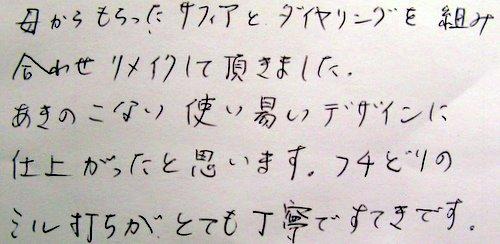 母からもらった サフィアと ダイヤリングを 組み
合わせ リメイクして頂きました.
あきの こない 使い易い デザインに
仕上がったと思います。フチどりの
ミル打ちが とても丁寧ですてきです。